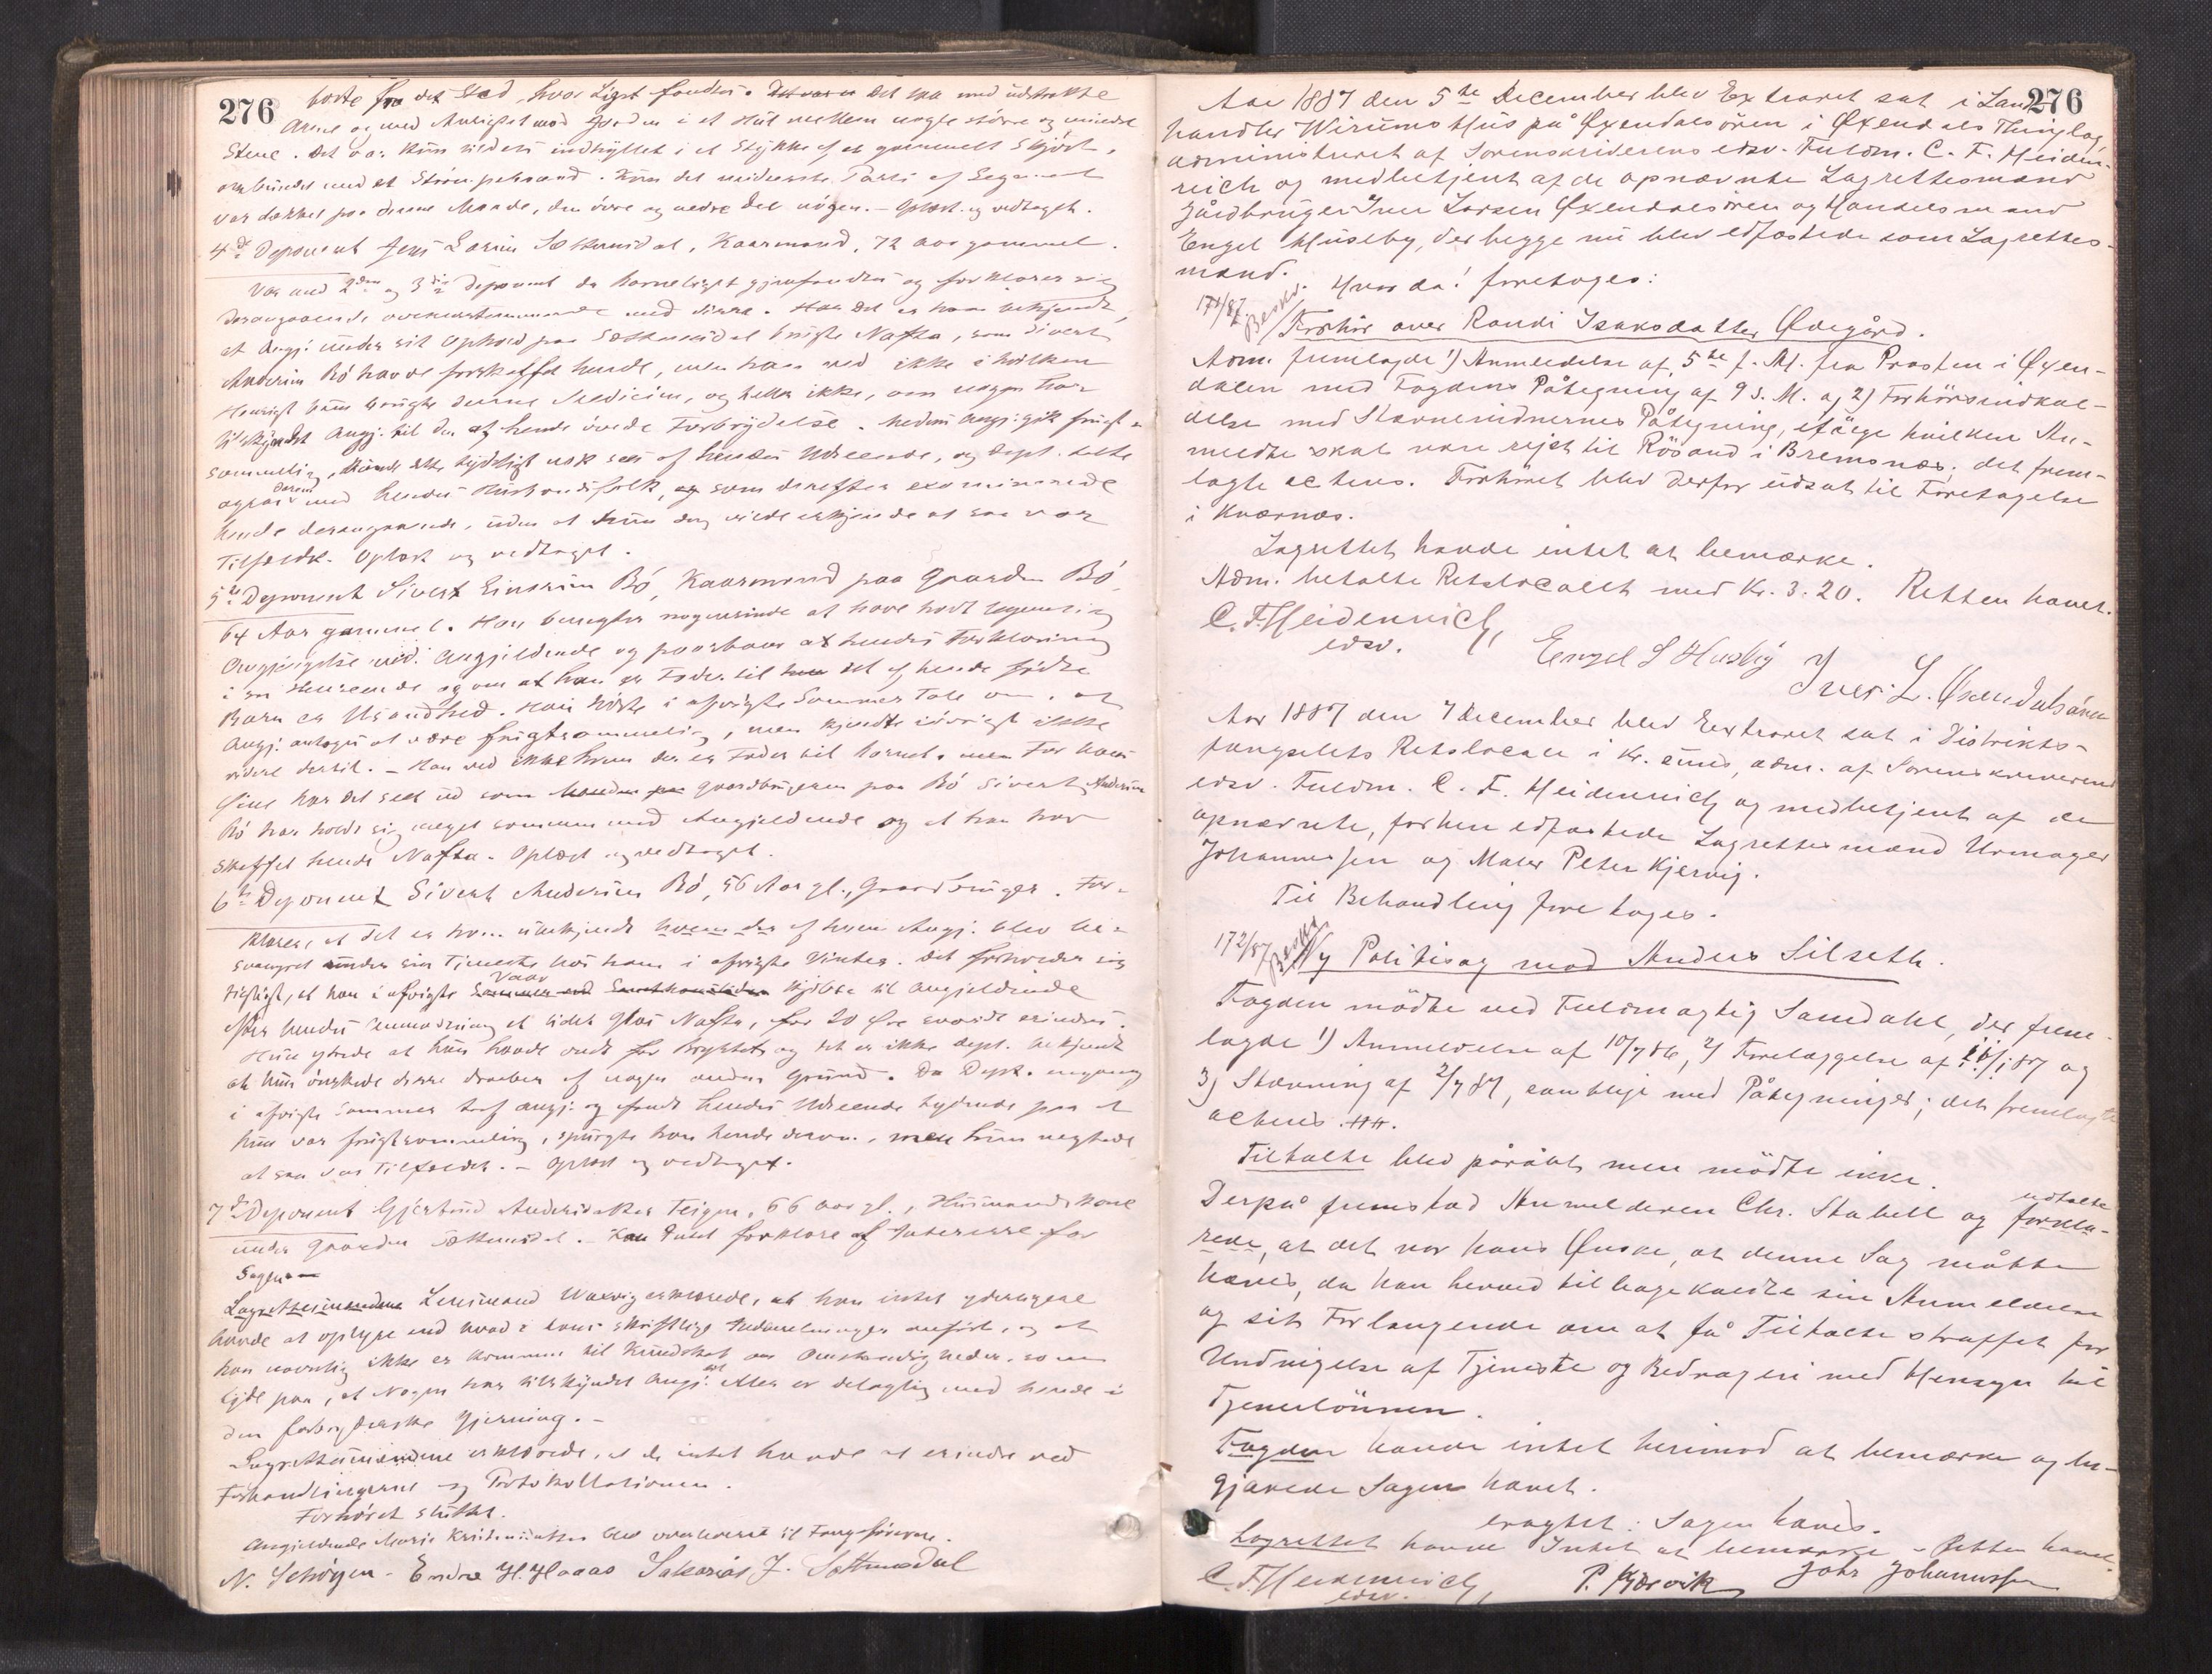 276
borte fra det Sted, hvor Liget fandtes. Det var Det laa med udstrakte
Arme og med Ansigtet mod Jorden i et Hul mellem nogle större og mindre
Stene. Det var kun tildels indhyllet i et Stykke af et gammelt Skjört,
ombundet med et Strömpebaand. Kun det midterste Parti af Legemet
var dækket paa denne Maade, den övre og nedre Del nögen. - Oplæst og vedtaget.
4de Deponent Jens Larsen Sættemsdal, Kaarmand, 72 Aar gammel.
Var med 2den og 3die Deponent da Barneliget gjenfandtes og forklarer sig
desangaaende overensstemmende med disse. Har Det er ham bekjendt,
at Angj. under sit Ophold paa Sættemsdal brugte Nafta, som Sivert
Andersen Bö havde forskaffet hende, men han ved ikke i hvilken
Hensigt hun brugte denne Medicin, og heller ikke, om nogen har
tilskyndet Angj. til den af hende övede Forbrydelse. Medens Angj. gik frugt-
sommelig, kunde dette tydeligt nok sees af hendes Udseende, og Dept. talte
ogsaa derom med hendes Husbondsfolk, og som derefter examinerede
hende desangaaende, uden at hun dog vilde erkjende at saa var
Tilfældet. Oplæst og vedtaget.
5te Deponent Sivert Einarsen Bö, Kaarmand paa Gaarden Bö
64 Aar gammel. Han benægter nogensinde at have havt legemlig
Omgjængelse med Angjeldende og paastaar at hendes Forklaring
i saa Henseende og om at han er Fader til det af hende födte
Barn er Usandhed. Han hörte i afvigte Sommer Tale om, at
Angj. antoges at være frugtsommelig, men kjendte iövrigt ikke
videre dertil. - Han ved ikke hvem der er Fader til Barnet, men For hans
Öine har det seet ud som Gaardbrugeren paa Bö Sivert Andersen
Bö har holdt sig meget sammen med Angjeldende og at han har
skaffet hende Nafta. Oplæst og vedtaget.
6te Deponent Sivert Andersen Bö, 56 Aar gl., Gaardbruger. For-
klarer, at det er ham ubekjendt hvem der af hvem Angj. blev be-
svangret under sin Tjeneste hos ham i afvigte Vinter. Det forholder sig
rigtigt, at han i afvigte Vaar kjöbte til Angjeldende
efter hendes Anmodning et lidet Glas Nafta, for 20 Öre saavidt erindres.
Hun ytrede at hun havde ondt for Brystet og det er ikke Dept. bekjendt
at hun önskede disse Draaber af nogen anden Grund. Da Dept. engang
i afvigte Sommer traf Angj. og fandt hendes Udseende tydende paa at
hun var frugtsommelig, spurgte han hende derom, men hun negtede
at saa var Tilfældet. - Oplæst og vedtaget.
7de Deponent Gjertrud Andersdatter Teigen, 66 Aar gl., Husmandskone
under Gaarden Sættemsdal. - Kan Intet forklare af Interesse for
Sagen. -
Lagrettesmændene Lensmand erklærede, at han intet yderligere
havde at oplyse end hvad i hans skriftlige Indberetninger anfört, og at
han navnlig ikke er kommen til Kundskab om Omstændigheder, som
tyde paa, at Nogen har tilskyndet Angj. til eller er delagtig med hende i
den forbryderske Gjerning. -
Lagrettesmændene erklærede, at de intet havde at erindre ved
Forhandlingerne og Protokollationen.
Forhöret sluttet.
Angjeldende Marie Kristensdatter blev overleveret til Fangeföreren.
N. Schöyen - Endre H. Haaas Sakarias J. Sættemsdal
276
Aar 1887 den 5te December blev Extraret sat i Land-
handler Wirums Hus på Øxendalsören i Øxendals Thinglag,
administreret af Sorenskriverens edsv. Fuldm. C. F. Heiden-
reich og medbetjent af de opnævnte Lagrettesmænd
Gårdbruger Iver Larsen Øxendalsören og Handelsmand
Engel Husby, der begge nu blev edfæstede som Lagrettes-
mænd.
Hvor da! foretoges:
171/87
Beskr. Forhör over Randi Isaksdatter Ødegård.
Adm. fremlagde 1) Anmeldelse af 5te f. M. fra Præsten i Øxen-
dalen med Fogdens Påtegning af 9 s. M. og 2) Forhörsindkal-
delse med Stævnevidnernes Påtegning, ifölge hvilken An-
meldte skal være rejst til Rösand i Bremsnæs; det frem-
lagte acteres. Forhöret blev derfor udsat til Foretagelse
i Kværnæs.
Lagrettet havde intet at bemærke.
Adm. betalte Retslocalet med Kr. 3.20. Retten hævet.
C. F. Heidenreich,
edsv.
Engel S Husby Iver. L. Øxendalsören
Aar 1887 den 7 December blev Extraret sat i Distrikts-
fængselets Retslocale i Kr.sund, adm. af Sorenskriverens
edsv. Fuldm. C. F. Heidenreich og medbetjent af de
opnævnte, forhen edfæstede Lagrettesmænd Urmager
Johannessen og Maler Peter Kjervig.
Til Behandling foretoges.
172/87
Beskr. Ny Politisag mod Anders Silseth.
Fogden mödte ved Fuldmægtig Samdahl, der frem-
lagde 1) Anmeldelse af 10/7 86, 2) Forelæggelse af 18/1 87 og
3) Stævning af 2/7 87, samtlige med Påtegninger; det fremlagte
acteres.
Tiltalte blev påråbt men mödte ikke.
Derpå fremstod Anmelderen Chr. Stabell og udtalte forkla-
rede, at det var hans Önske, at denne Sag måtte
hæves, da han herved tilbagekaldte sin Anmeldelse
og sit Forlangende om at få Tiltalte straffet for
Undvigelse af Tjeneste og Bedrageri med Hensyn til
Tjenerlönnen.
Fogden havde intet herimod at bemærke og be-
gjærede Sagen hævet.
eragtet: Sagen hæves.
Lagrettet havde Intet at bemærke - Retten hævet.
C. F. Heidenreich, P. Kjærvik Johs Johannessen
edsv.